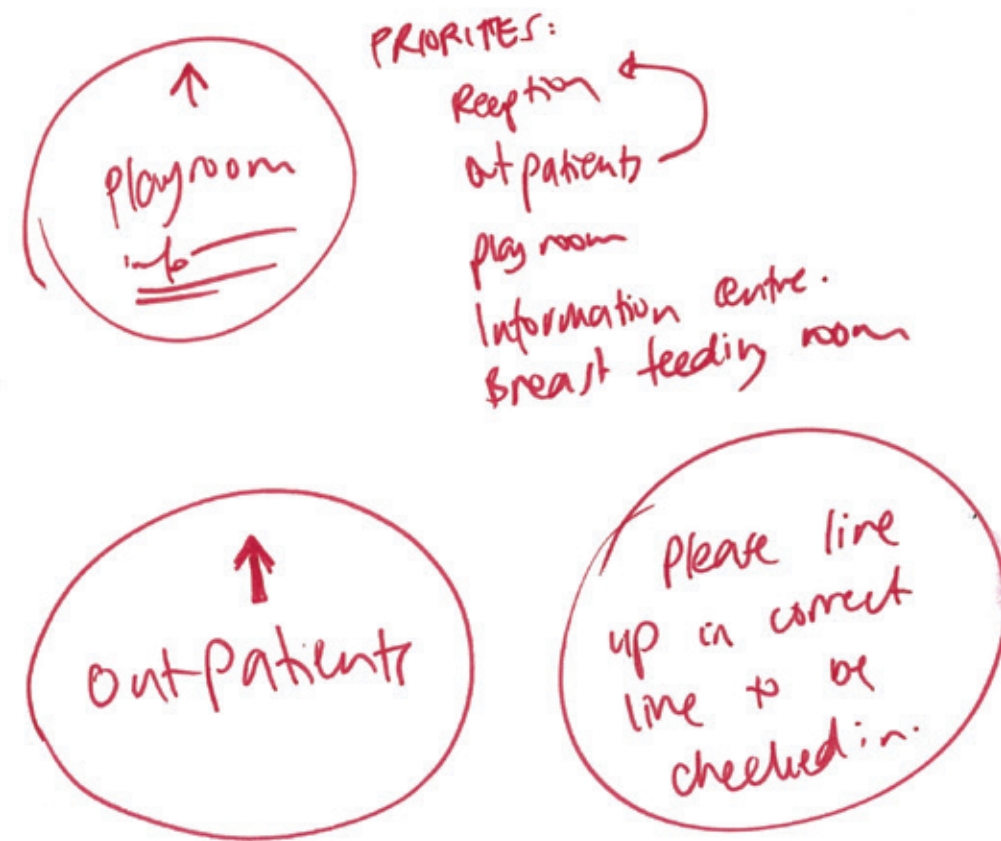 ↑
Playroom
info
PRIORITES:
Reeption
outpatients
play room
Information centre.
Breast feeding room
↑
outPatients
Please line
up in correct
line to be
checked in.